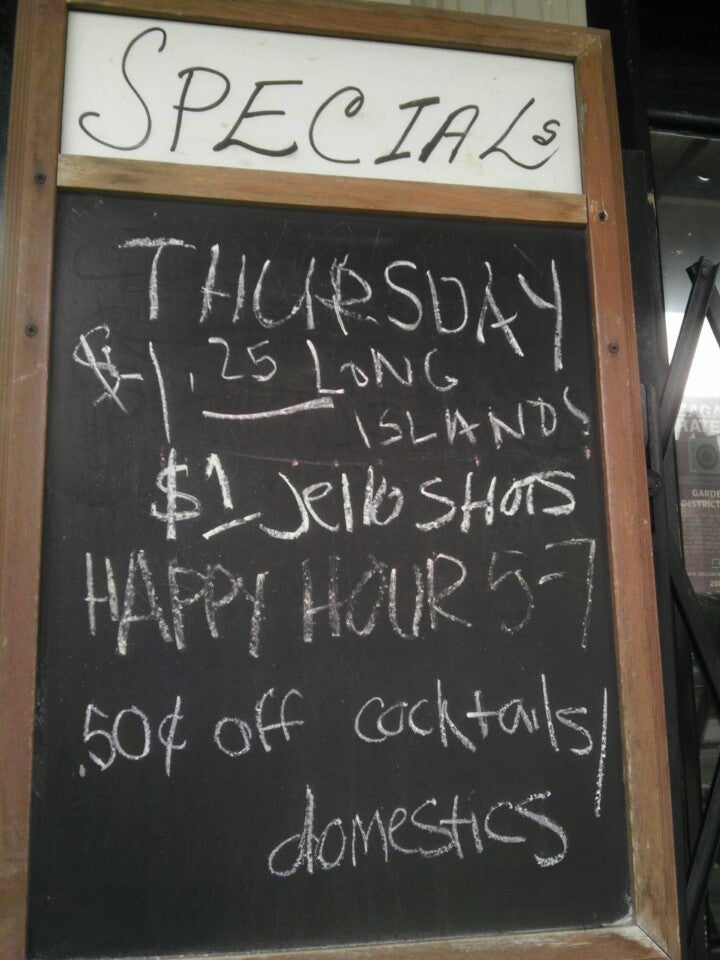 SPECIALs
THURSDAY
$1.25 LONG
ISLANDS
$1 Jello SHOTS
HAPPY HOUR 5-7
.50¢ off cocktails/
domestics
GARDE
DISTRICT